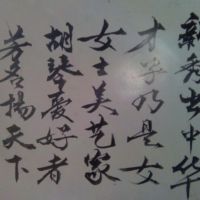 新秀出中华
才乎乃是女
女士美艺家
胡琴爱好者
芳名扬天下